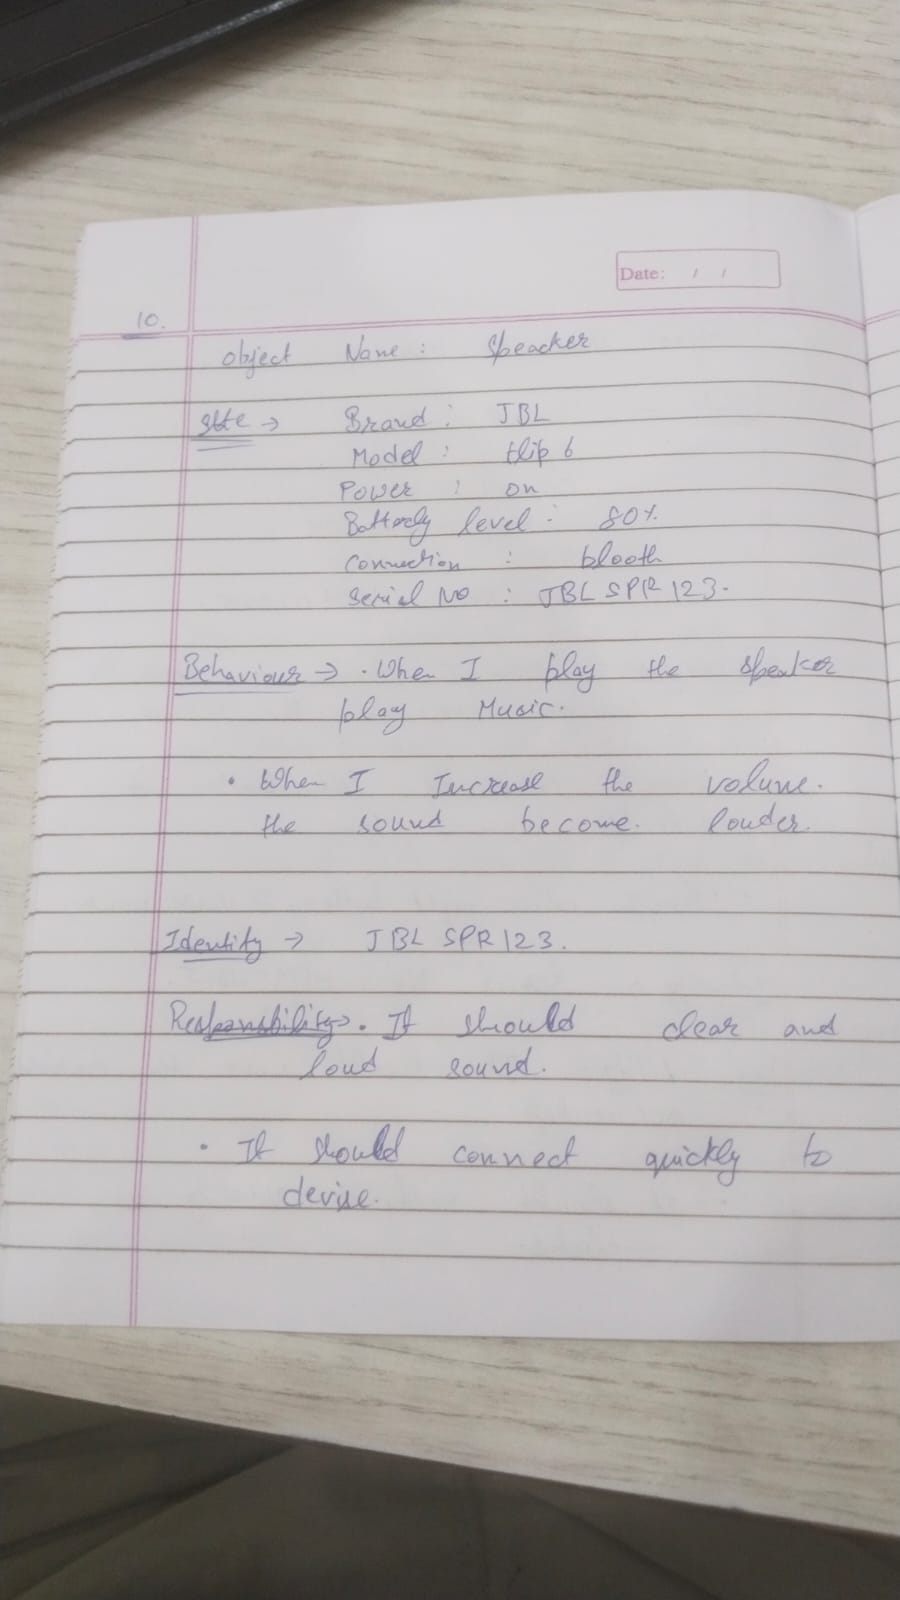 Date: / /
10.
object Name : Speacker
state → Brand : JBL
Model : flip 6
Power : on
Batterly level : 80%
Connection : blooth
Serial No : JBL SPR 123.
Behaviour → . When I play the speaker
play Music.
• When I Increase the volume.
the sound become. louder.
Identity → JBL SPR 123.
Responsibility → . It should clear and
loud sound.
• It should connect quickly to
devise.